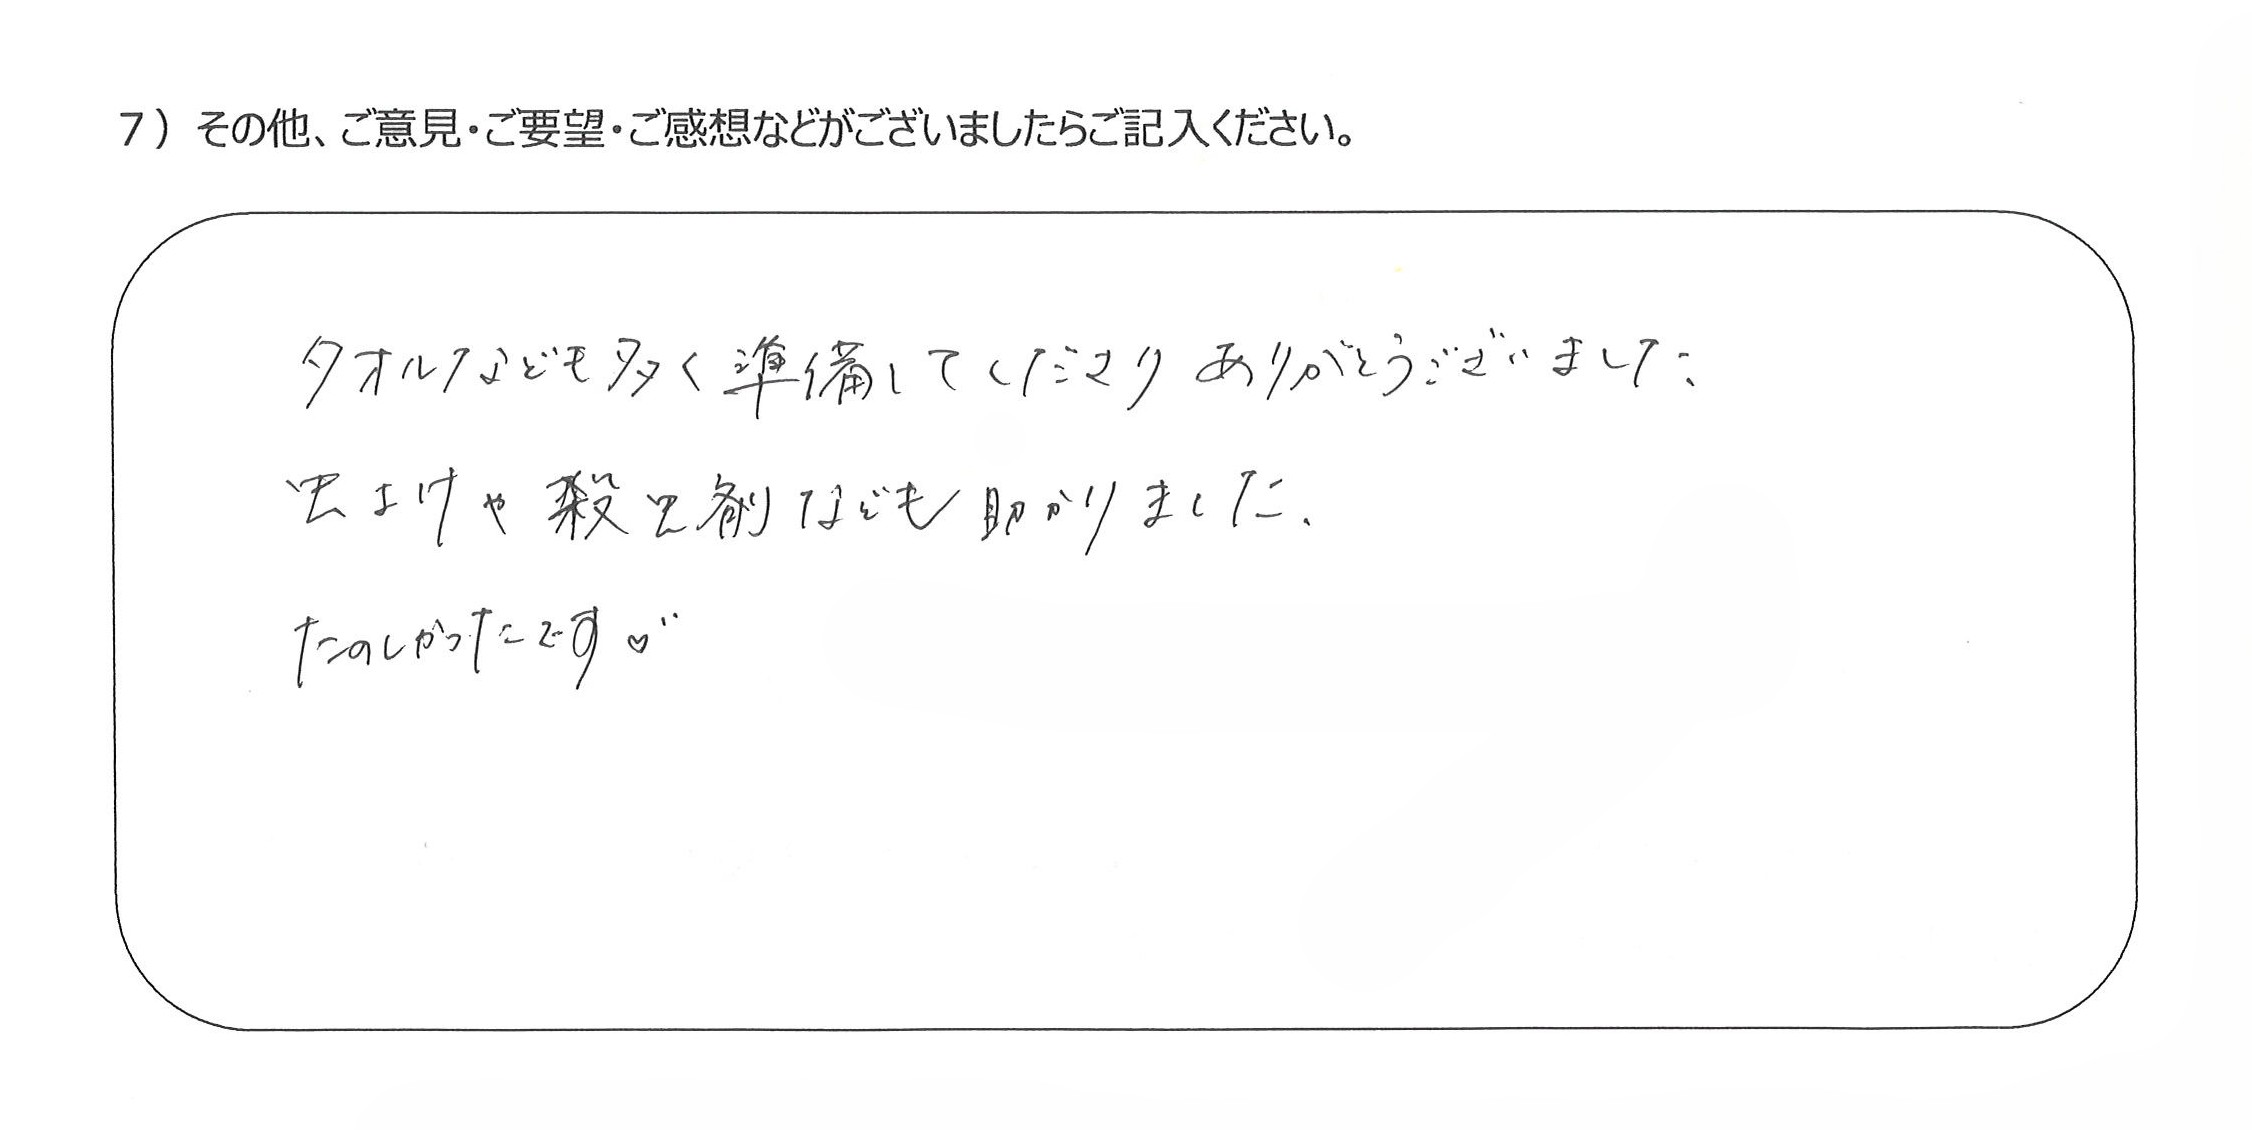 7）その他、ご意見・ご要望・ご感想などがございましたらご記入ください。
タオルなども多く準備してくださりありがとうございました。
虫よけや殺虫剤なども助かりました。
たのしかったです♡